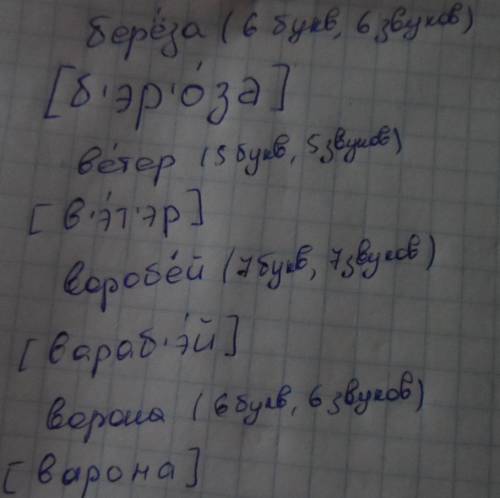 берёза (6 букв, 6 звуков)
[б'эр'о́за]
ве́тер (5 букв, 5 звуков)
[в'э́т'эр]
воробе́й (7 букв, 7 звуков)
[вараб'э́й]
ворона (6 букв, 6 звуков)
[варона]